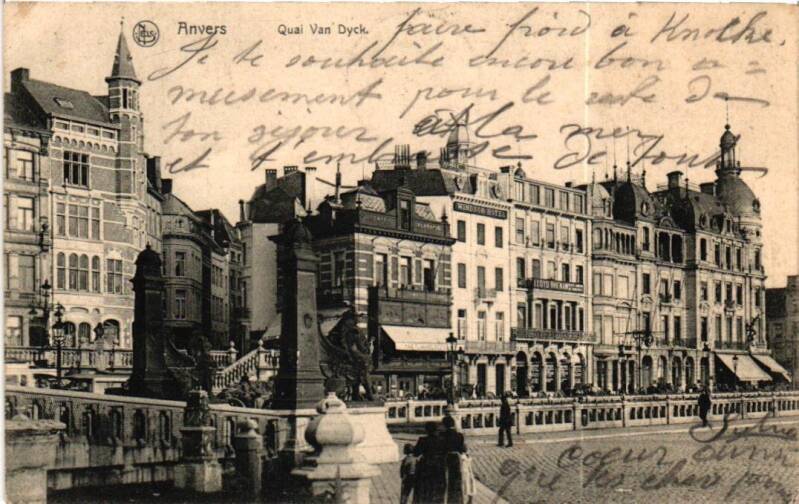 Anvers
Quai Van Dyck.
faire froid à Knocke.
Je te souhaite encore bon a=
musement pour le reste de
ton séjour à la mer
et t'embrasse de tout
cœur ainsi
que les
WINDSOR HOTEL
LLOYD RHENAN